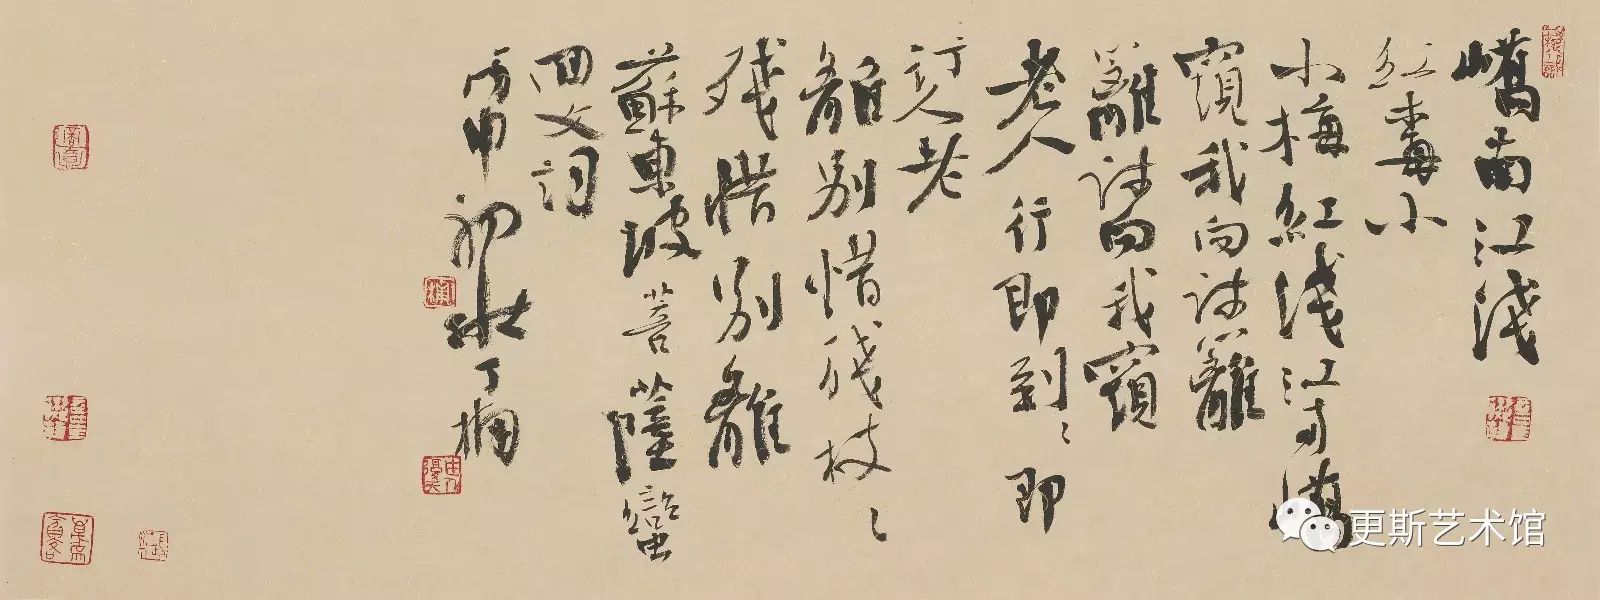 嶠南江淺
紅梅小
小梅紅淺江南嶠
窺我向疎籬
籬疎向我窺
老人行即到〻即
行人老
離別惜殘枝〻
殘惜別離
蘇東坡菩薩蠻
回文詞
丙申初
更斯艺术馆